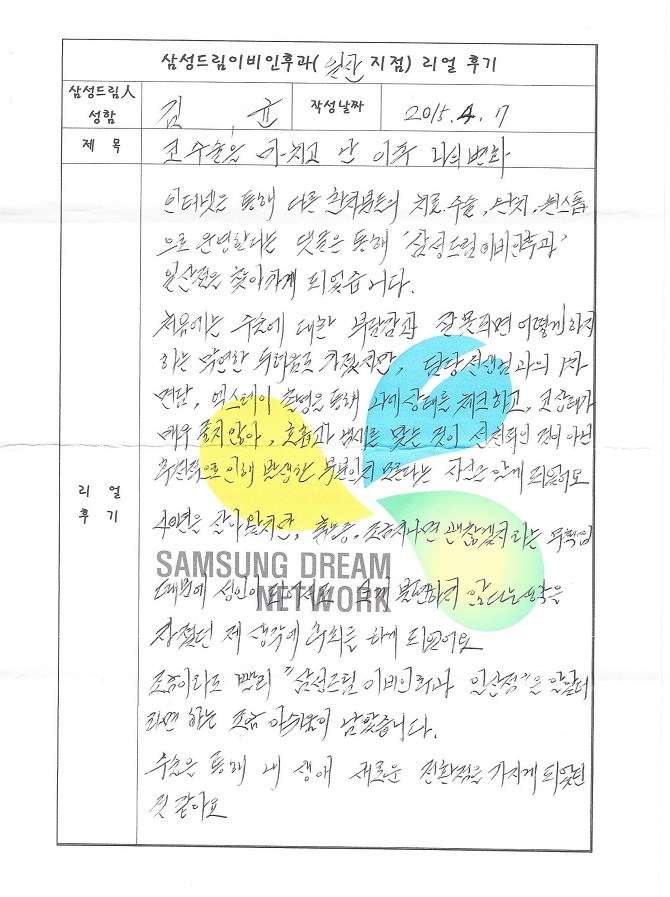 삼성드림이비인후과( 일산 지점) 리얼 후기
삼성드림人
성함
김 윤
작성날짜
2015. 4. 7
제 목
코 수술을 마치고 난 이후 나의 변화
인터넷을 통해 다른 환자분들의 치료. 수술, 원스톱
으로 운영한다는 댓글을 통해 "삼성드림이비인후과"
일산점을 찾아가게 되었습니다.
처음에는 수술에 대한 부담감과 잘못되면 어떻게 하지
하는 막연한 두려움도 가졌지만, 담당선생님과의 1차
면담, 엑스레이 촬영을 통해 나에 상태를 체크하고, 코상태가
매우 좋지않아, 호흡과 냄새를 맞는 것이 선천적인 것이 아닌
후천적으로 인해 발생한 부분인지 모른다는 사실을 알게 되었어요
리 얼
후 기
40년을 살아왔지만, 조금지나면 괜찮겠지 라는
SAMSUNG DREAM
NETWORK
때문에 성인이 되어서도 크게 불편하지 않다는 생각을
가졌던 제 생각에 후회를 하게 되었어요
조금이라도 빨리 "삼성드림이비인후과 일산점"을 알았더
라면 하는 조금 아쉬움이 남았습니다.
수술을 통해 내 생애 새로운 전환점을 가지게 되었던
것 같아요